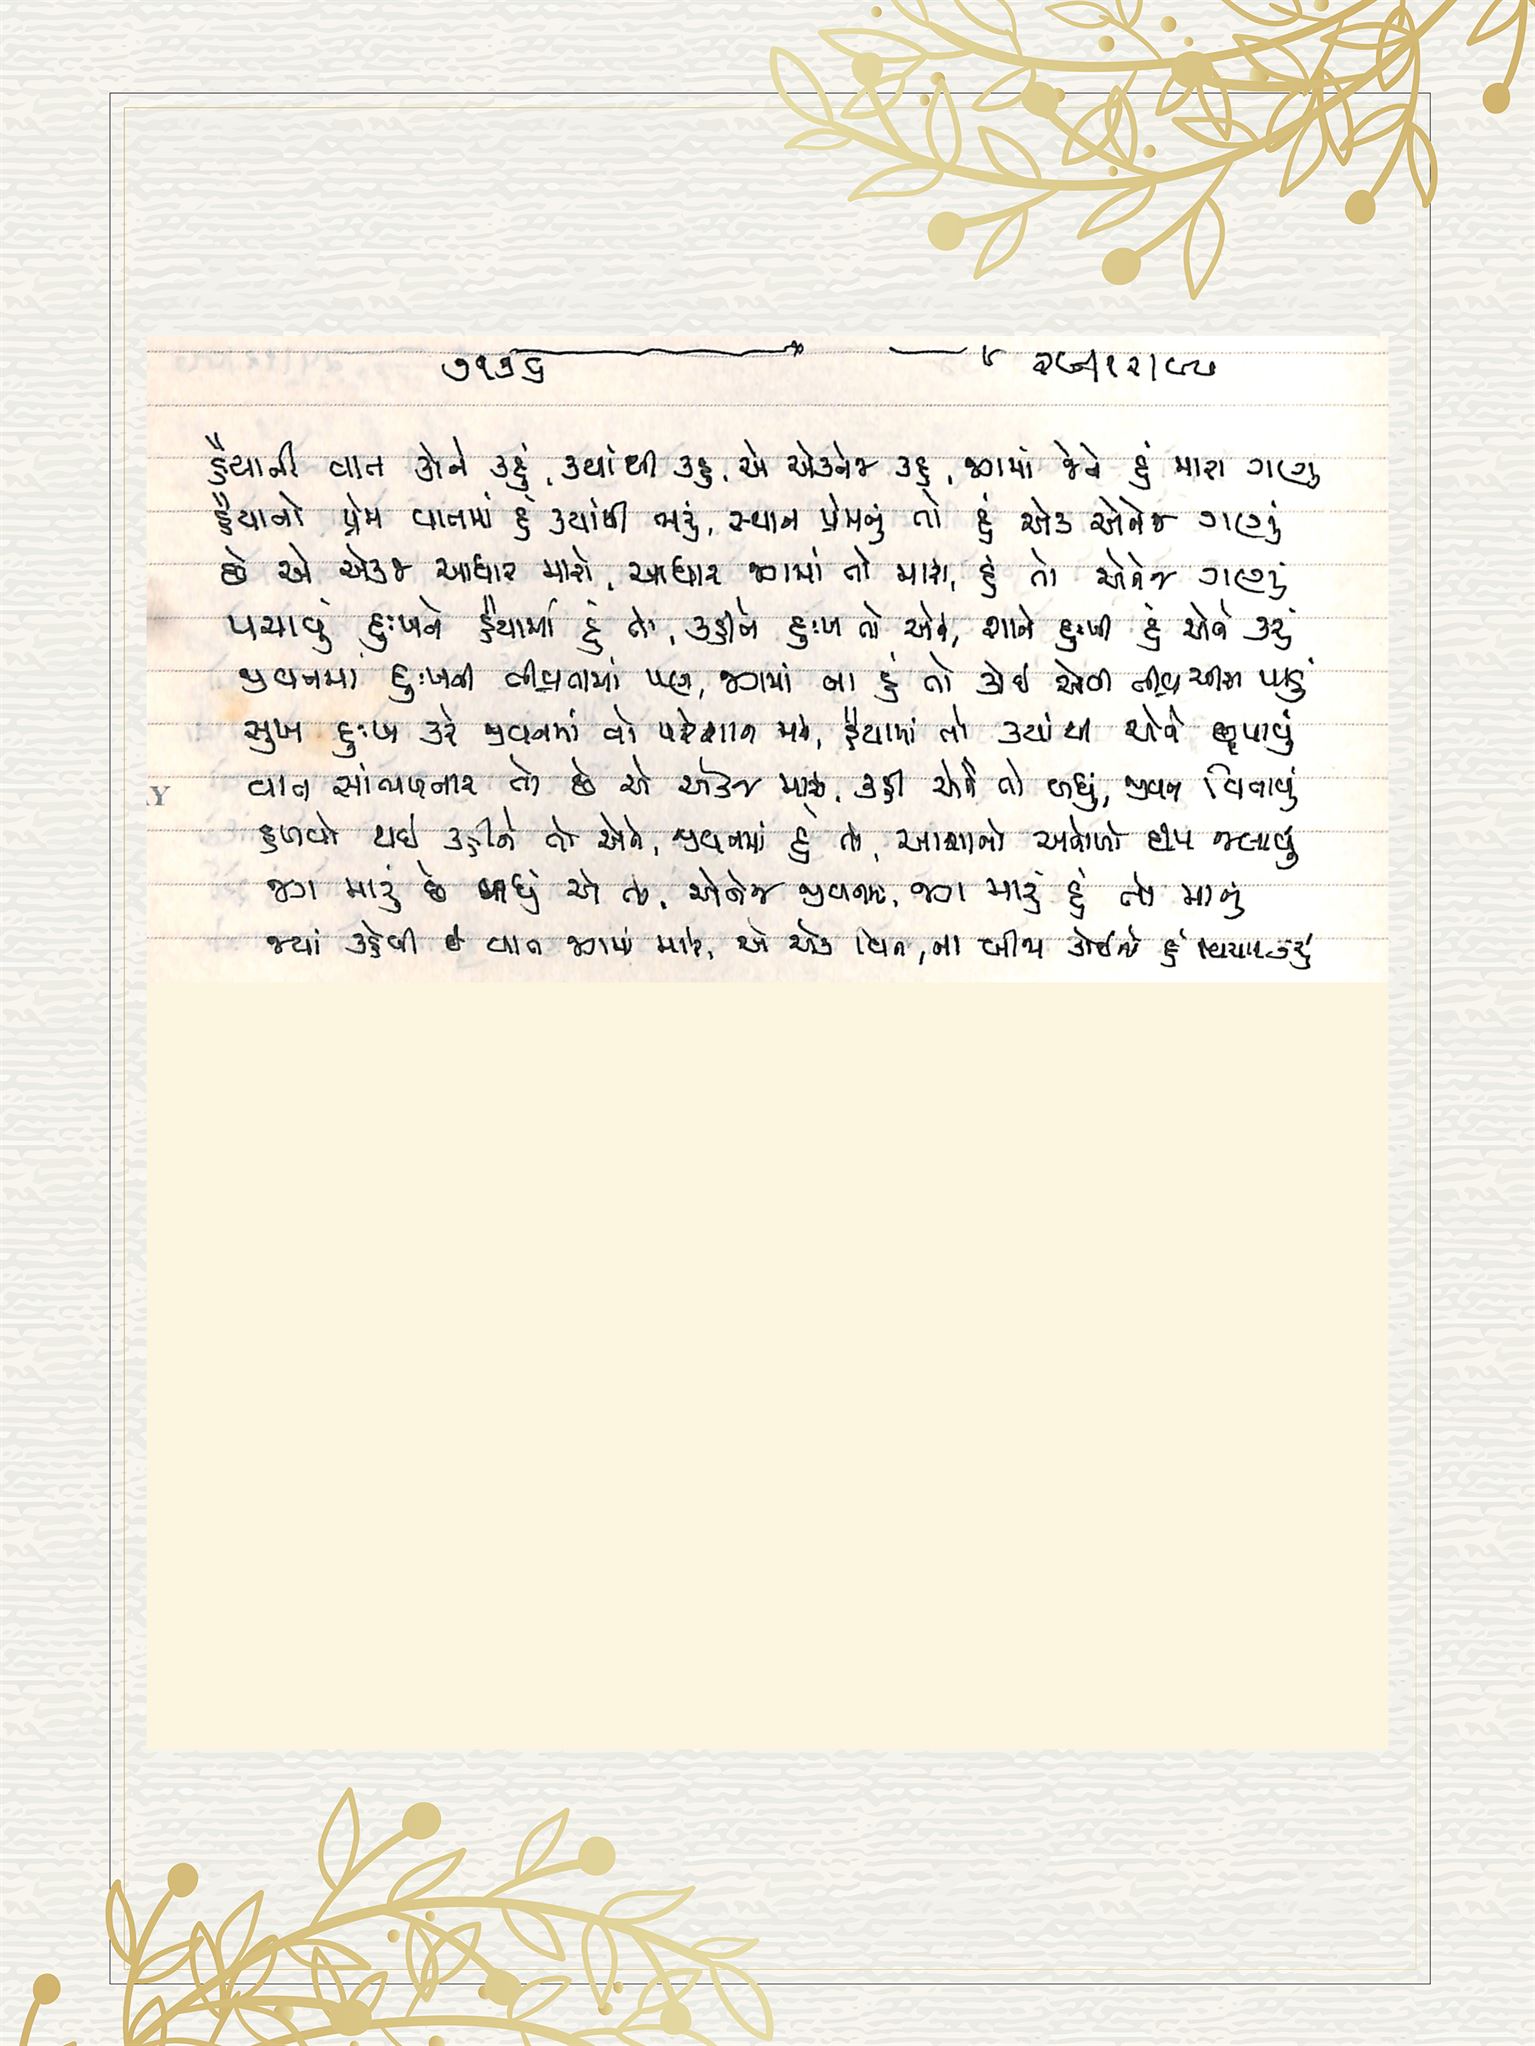 ૭૧૩૬
હૈયાની વાત કોને કહું, ક્યાંથી કહું, એ એકનેજ કહું, જગમાં જેને હું મારા ગણું
હૈયાનો પ્રેમ વાતમાં હું ક્યાંથી ભરું, સ્થાન પ્રેમનું તો હું એક એનેજ ગણું
છે એ એકજ આધાર મારો, આધાર જગમાં તો મારા, હું તો એનેજ ગણું
પચાવું દુઃખને હૈયામાં હું તો, કહીને દુઃખ તો એને, શાને દુઃખી હું એને કરું
જીવનમાં દુઃખની તીવ્રતામાં પણ, જગમાં ના હું તો કોઈ એવી તીવ્ર ચીસ પાડું
સુખ દુઃખ કરે જીવનમાં તો પરેશાન મને, હૈયામાં તો ક્યાંથી એને છુપાવું
વાત સાંભળનાર તો છે એ એકજ મારા, કહી એને તો બધું, જીવન વિતાવું
હળવો થઈ કહીને તો એને, જીવનમાં હું તો, આશાનો અનોખો દીપ જલાવું
જગ મારું છે બધું એ તો, એનેજ જીવનમાં, જગ મારું હું તો માનું
જ્યાં કહેવી છે વાત જગમાં મારે, એ એક વિના, ના બીજા કોઈનો હું વિચાર કરું